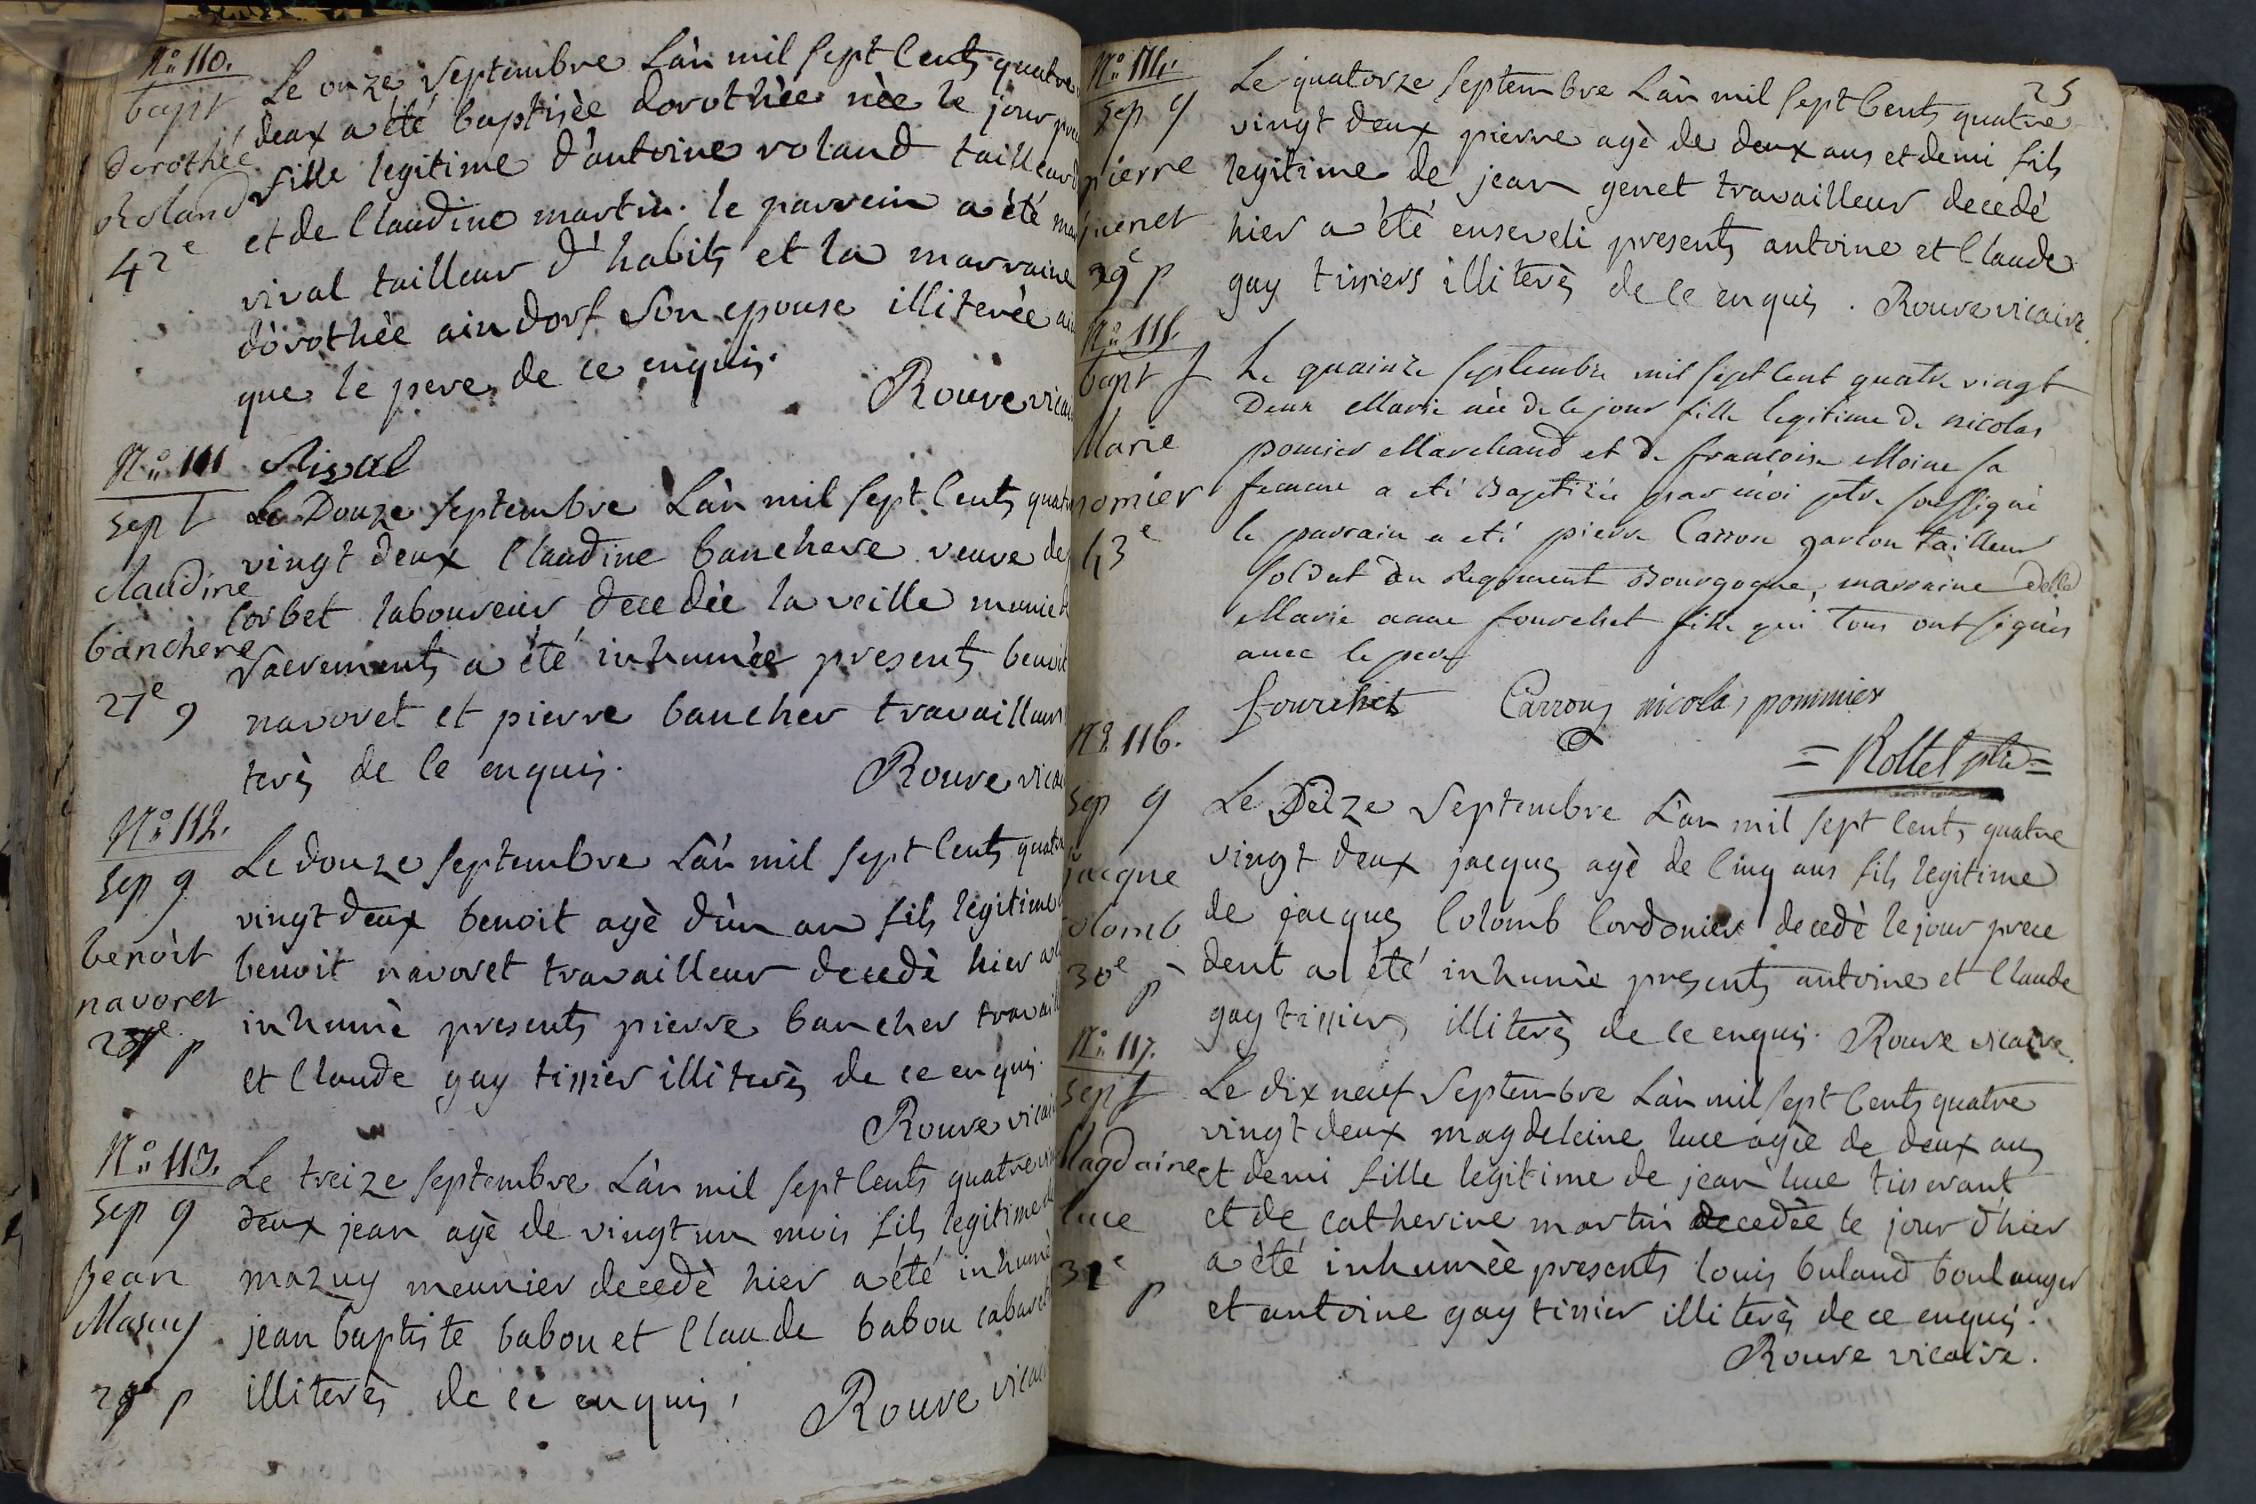 N.° 110.
bapt
dorothée
Roland
42e
Le onze Septembre L'an mil sept Cents quatre
deux a été baptisèe dorothèe nèe le jour
fille legitime d'antoine roland tailleur
et de Claudine martin. le parrein a été
vival tailleur d'habits et la marraine
dorothèe aindorf Son epouse illiterèe
que le pere de ce enquis.
Rouve
N.° 111
sep f
claudine
banchere
27e g
Rival
Le Douze Septembre L'an mil sept Cents
vingt deux Claudine banchere veuve de
Corbet laboureur decedèe la veille munie
Sacrements a été inhumèe presents benoit
navoret et pierre bancher travailleurs
terès de Ce enquis.
Rouve
N.° 112.
sep g
benoit
navoret
p
Le douze septembre L'an mil sept Cents
vingt deux benoit agè d'un an fils legitime
benoit navoret travailleur decedè hier
inhumè presents pierre bancher
et Claude gay tissier illiterès de ce enquis.
Rouve
N.° 113.
sep g
jean
Masuy
p
Le treize septembre L'an mil sept Cents quatre
deux jean agè de vingt un mois fils legitime
mazuy meunier decedè hier a été inhumè
jean baptiste babou et Claude babou
illiterès de ce enquis.
Rouve
25
N.° 114.
sep g
pierre
juenet
29e p
Le quatorze septembre L'an mil sept Cents quatre
vingt deux pierre agè de deux ans et demi fils
legitime de jean genet travailleur decedè
hier a été enseveli presents antoine et Claude
gay tissiers illiterès de Ce enquis. Rouve vicaire.
N.° 115.
bapt f
Marie
pomier
43e
Le quainze septembre mil sept Cent quatre vingt
Deux Marie née de Ce jour fille legitime de nicolas
pomier Marchand et de françoise Moine sa
femme a été Baptisée par moi ptre soussigné
le parrain a été pierre Carron garcon tailleur
soldat du Regiment Bourgogne, marraine delle
Marie anne fourchet fille qui tous ont signès
avec le pere
fourchet Carron nicolas pommier
= Rollet ptre =
N.° 116.
Sep g
jacque
Colomb
30e p
Le Seize Septembre L'an mil sept Cents quatre
vingt deux jacques agè de Cinq ans fils legitime
de jacques Colomb Cordonier decedè le jour prece
dent a été inhumè presents antoine et Claude
gay tissiers illiterès de Ce enquis. Rouve vicaire.
N.° 117.
sep f
Magdaine
luce
31e p
Le dix neuf Septembre L'an mil sept Cents quatre
vingt deux magdeleine luce agèe de deux ans
et demi fille legitime de jean luce tisserant
et de catherine martin decedèe le jour d'hier
a été inhumèe presents louis buland boulanger
et antoine gay tissier illiterès de ce enquis.
Rouve vicaire.